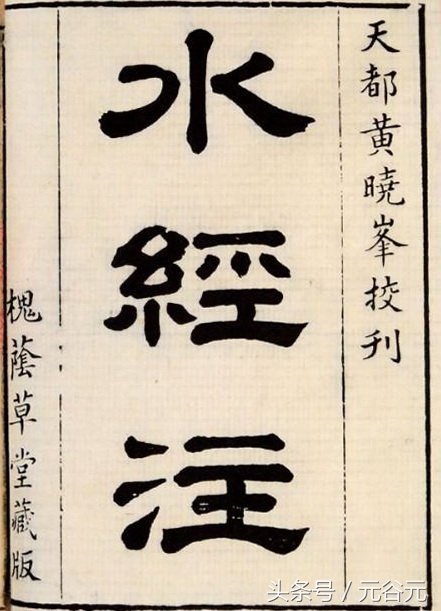 天都黄曉峯挍刊
水經注
槐蔭草堂藏版
头条号/元谷元